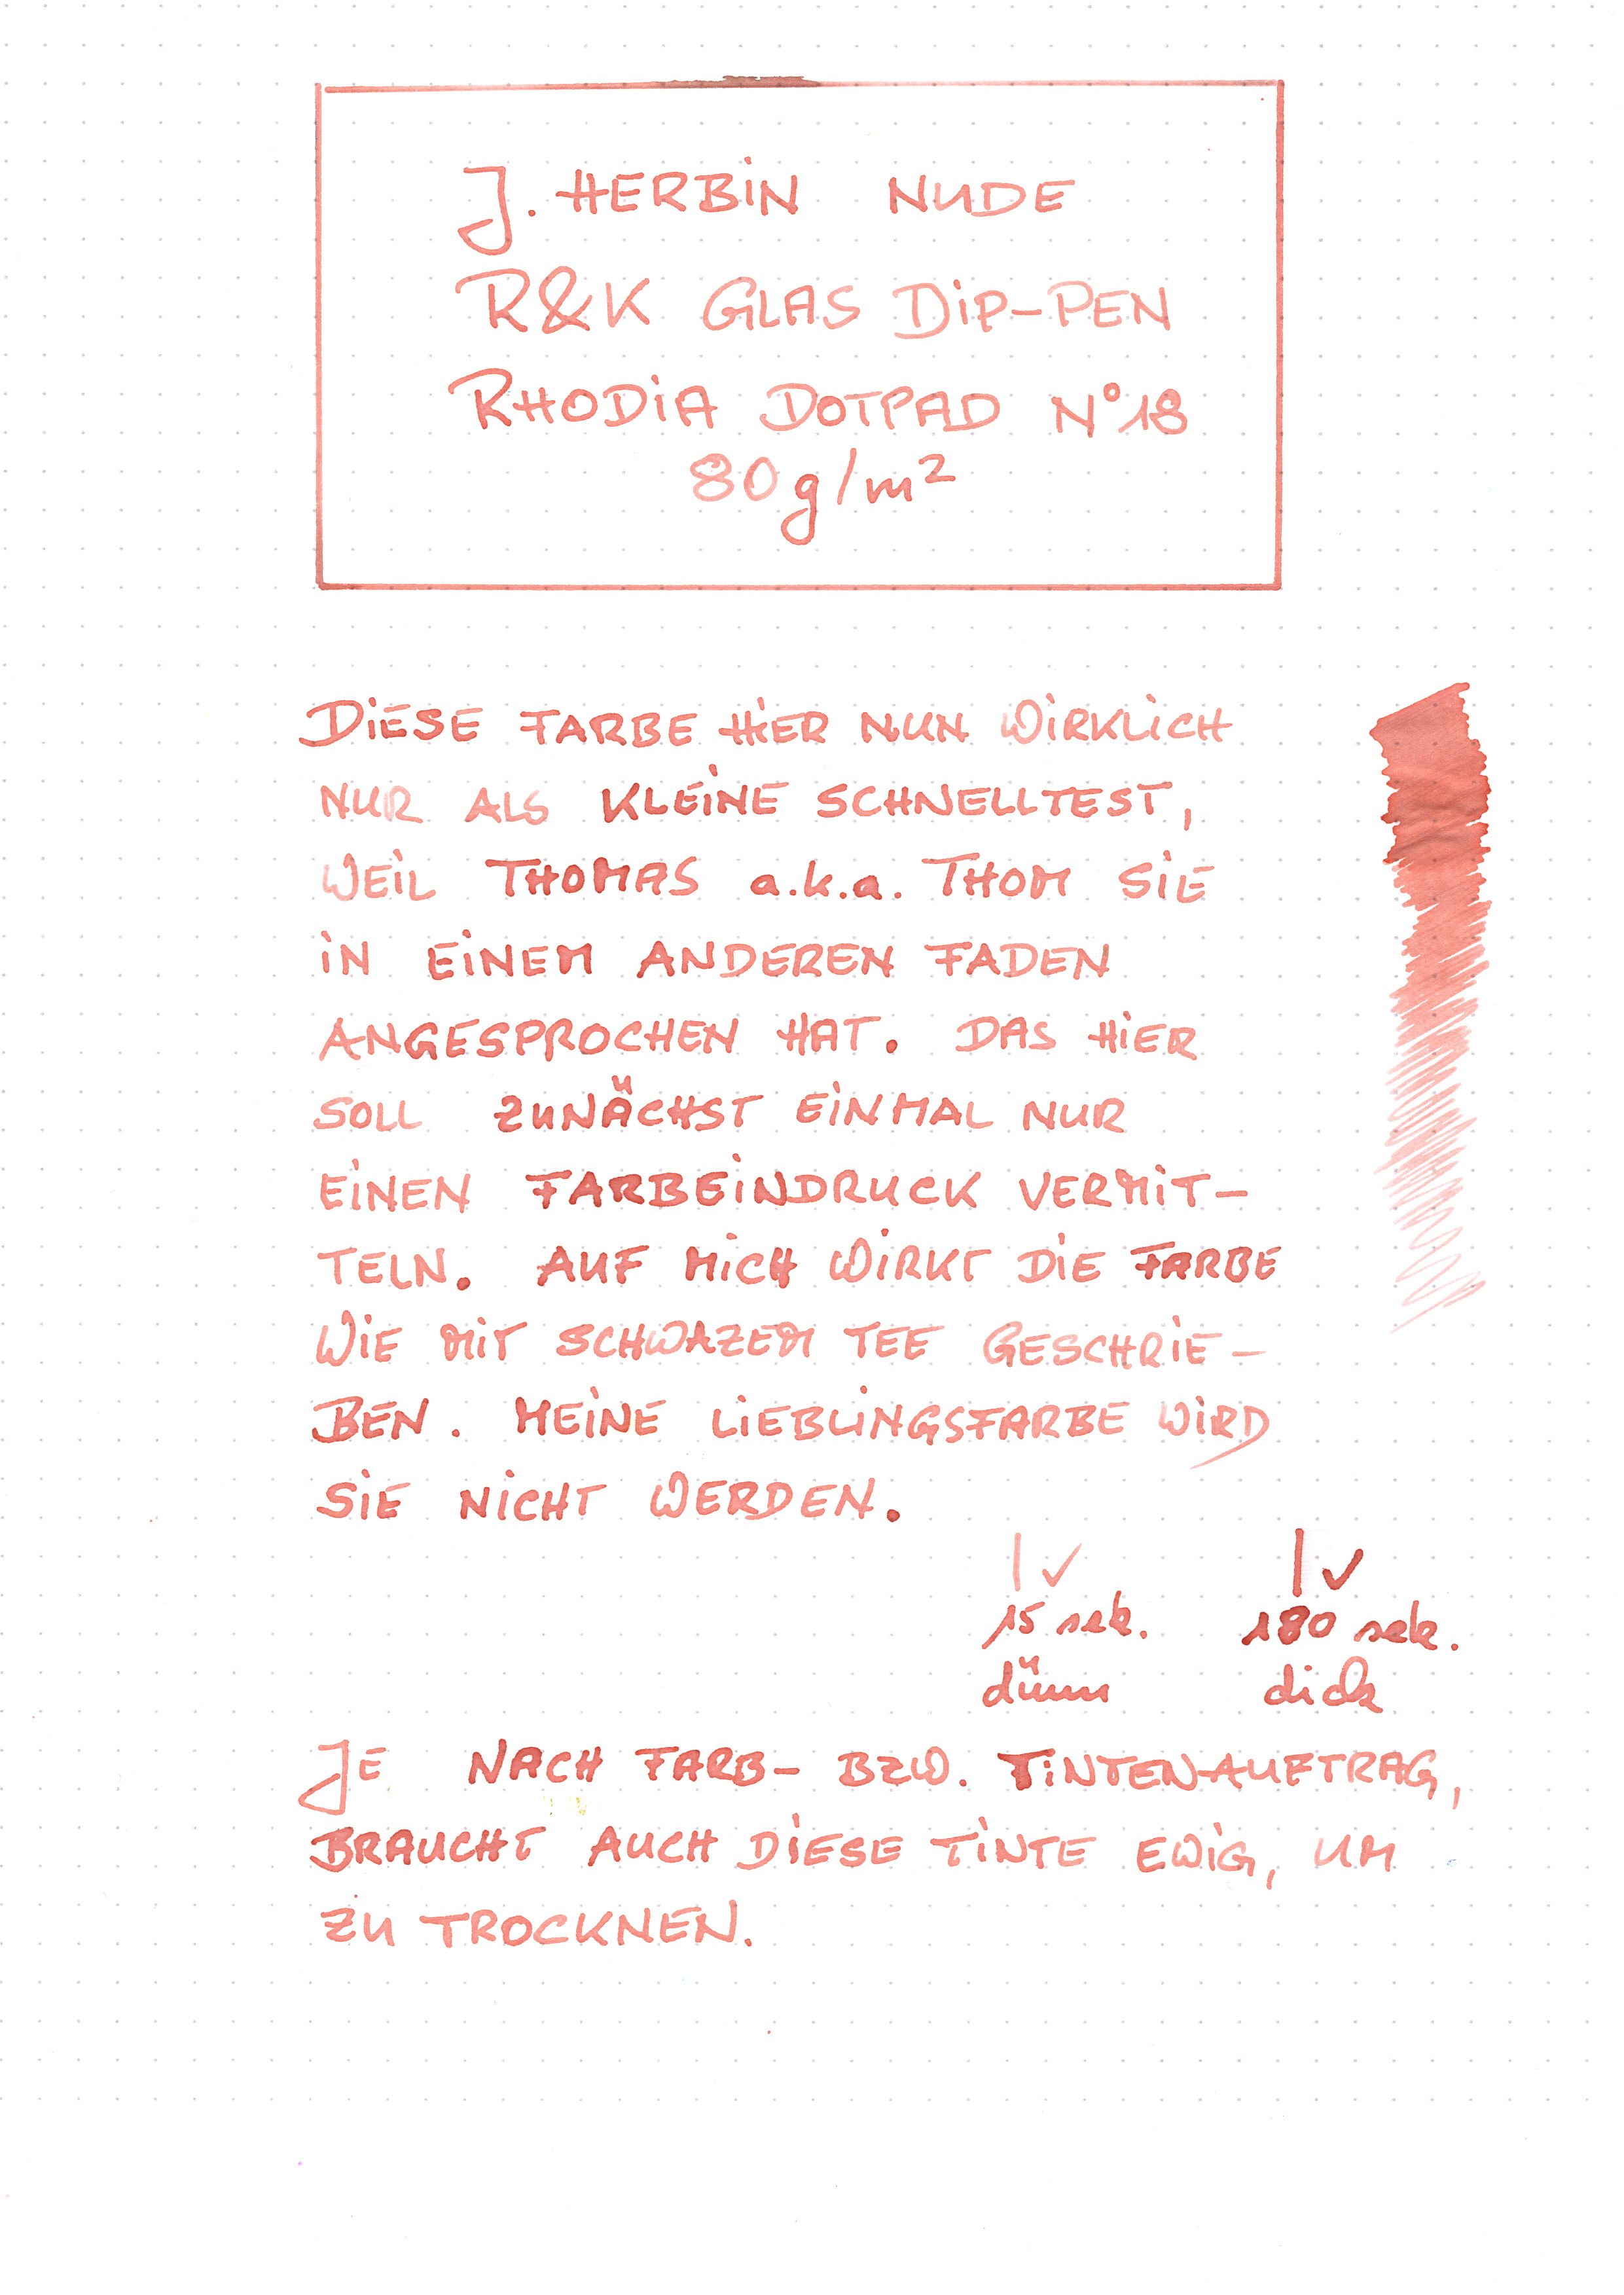 J. HERBIN NUDE
R&K GLAS DIP-PEN
RHODIA DOTPAD N°18
80g/m²
DIESE FARBE HIER NUN WIRKLICH
NUR ALS KLEINE SCHNELLTEST,
WEIL THOMAS a.k.a. THOM SIE
IN EINEM ANDEREN FADEN
ANGESPROCHEN HAT. DAS HIER
SOLL ZUNÄCHST EINMAL NUR
EINEN FARBEINDRUCK VERMIT-
TELN. AUF MICH WIRKT DIE FARBE
WIE MIT SCHWAZEM TEE GESCHRIE-
BEN. MEINE LIEBLINGSFARBE WIRD
SIE NICHT WERDEN.
| ✓ | ✓
15 sek. 180 sek.
dünn dick
JE NACH FARB- BZW. TINTEN-AUFTRAG,
BRAUCHT AUCH DIESE TINTE EWIG, UM
ZU TROCKNEN.